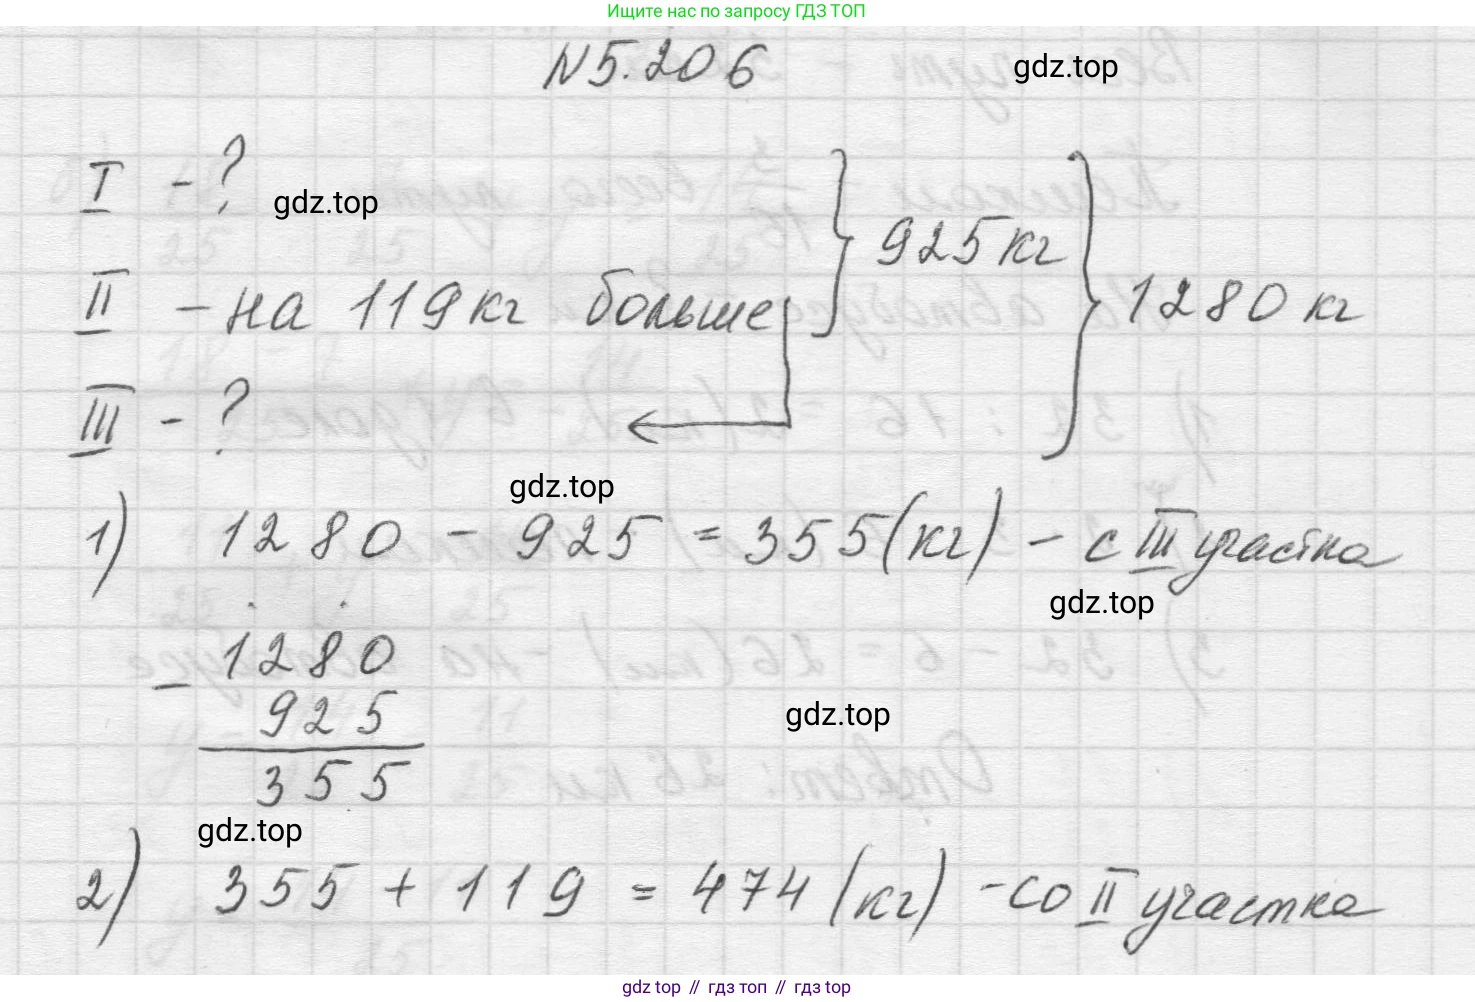 Ищите нас по запросу ГДЗ ТОП
N 5.206
gdz.top
I - ?
gdz.top
925 кг
II - на 119 кг больше
1280 кг
III - ?
gdz.top
1) 1280 - 925 = 355 (кг) - с III участка
gdz.top
- 1280
925
gdz.top
355
gdz.top
2) 355 + 119 = 474 (кг) - со II участка
gdz.top // гдз топ // гдз top